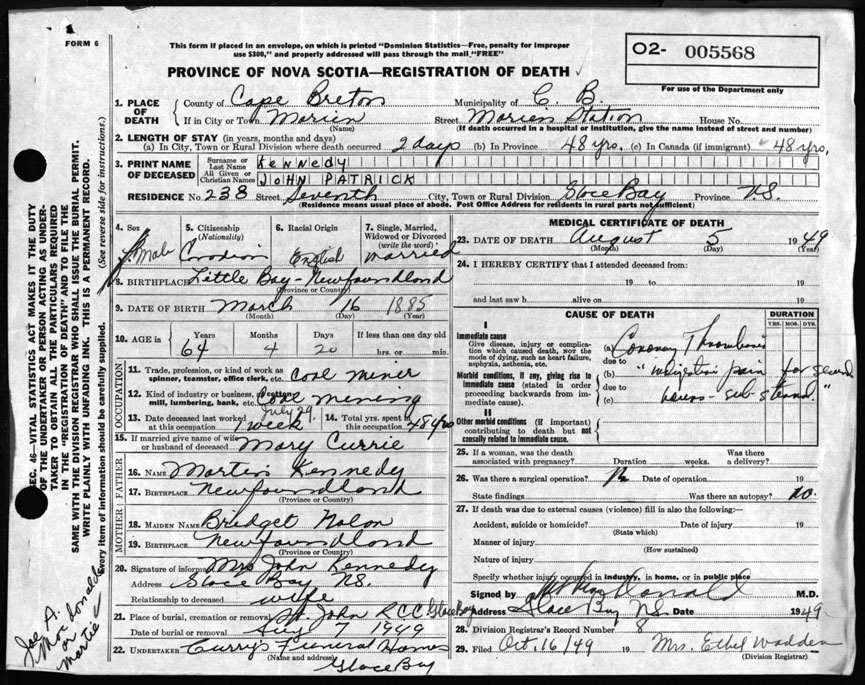 FORM 6
This form if placed in an envelope, on which is printed "Dominion Statistics—Free, penalty for improper
use $300," and properly addressed will pass through the mail "FREE"
PROVINCE OF NOVA SCOTIA—REGISTRATION OF DEATH
O2- 005568
For use of the Department only
SEC. 46—VITAL STATISTICS ACT MAKES IT THE DUTY
OF THE UNDERTAKER OR PERSON ACTING AS UNDER-
TAKER TO OBTAIN ALL THE PARTICULARS REQUIRED
IN THE "REGISTRATION OF DEATH" AND TO FILE THE
SAME WITH THE DIVISION REGISTRAR WHO SHALL ISSUE THE BURIAL PERMIT.
WRITE PLAINLY WITH UNFADING INK. THIS IS A PERMANENT RECORD.
Every item of information should be carefully supplied. (See reverse side for instructions.)
1. PLACE OF DEATH County of Cape Breton Municipality of C. B.
If in City or Town Marien (Name) Street Marien Station House No.
(If death occurred in a hospital or institution, give the name instead of street and number)
2. LENGTH OF STAY (in years, months and days)
(a) In City, Town or Rural Division where death occurred 2 days (b) In Province 48 yrs. (c) In Canada (if immigrant) 48 yrs.
3. PRINT NAME OF DECEASED Surname or Last Name KENNEDY
All Given or Christian Names JOHN PATRICK
RESIDENCE No. 238 Street Seventh City, Town or Rural Division Glace Bay Province N.S.
(Residence means usual place of abode. Post Office Address for residents in rural parts not sufficient)
4. Sex Male
5. Citizenship (Nationality) Canadian
6. Racial Origin English
7. Single, Married, Widowed or Divorced (write the word) married
8. BIRTHPLACE Little Bay - Newfoundland
(Province or Country)
9. DATE OF BIRTH March 16 1885
(Month) (Day) (Year)
10. AGE in Years 64 Months 4 Days 20 If less than one day old hrs. or min.
OCCUPATION
11. Trade, profession, or kind of work as spinner, teamster, office clerk, etc. Coal miner
12. Kind of industry or business, as cotton mill, lumbering, bank, etc. Coal mining
13. Date deceased last worked at this occupation July 29 1 week
14. Total yrs. spent in this occupation 48 yrs
15. If married give name of wife or husband of deceased Mary Currie
FATHER
16. Name Martin Kennedy
17. Birthplace Newfoundland
(Province or Country)
MOTHER
18. Maiden Name Bridget Nolan
19. Birthplace Newfoundland
(Province or Country)
20. Signature of informant Mrs John Kennedy
Address Glace Bay NS.
Relationship to deceased wife
21. Place of burial, cremation or removal St. John R.C.C. Glace Bay
Date of burial or removal Aug 7 1949
22. UNDERTAKER Curry's Funeral Homes
(Name and address) Glace Bay
MEDICAL CERTIFICATE OF DEATH
23. DATE OF DEATH August 5 1949
(Month) (Day) (Year)
24. I HEREBY CERTIFY that I attended deceased from:
19 to 19
and last saw h alive on 19
CAUSE OF DEATH DURATION
YRS. MOS. DYS.
I
Immediate cause
Give disease, injury or complication which caused death, NOT the mode of dying, such as heart failure, asphyxia, asthenia, etc.
(a) Coronary Thrombosis
due to
Morbid conditions, if any, giving rise to immediate cause (stated in order proceeding backwards from immediate cause).
(b) pain for several
due to
(c) hours - sub sternal."
II
Other morbid conditions (if important) contributing to death but not causally related to immediate cause.
25. If a woman, was the death associated with pregnancy? Duration weeks. Was there a delivery?
26. Was there a surgical operation? No Date of operation 19
State findings Was there an autopsy? no.
27. If death was due to external causes (violence) fill in also the following:
Accident, suicide or homicide? Date of injury 19
(State which)
Manner of injury
(How sustained)
Nature of injury
Specify whether injury occurred in industry, in home, or in public place
Signed by M.D.
Address Glace Bay N.S. Date 1949
28. Division Registrar's Record Number 8
29. Filed Oct. 16/49 19 Mrs. Ethel Wadden
(Division Registrar)
Joe A.
MacDonald
or
Martie